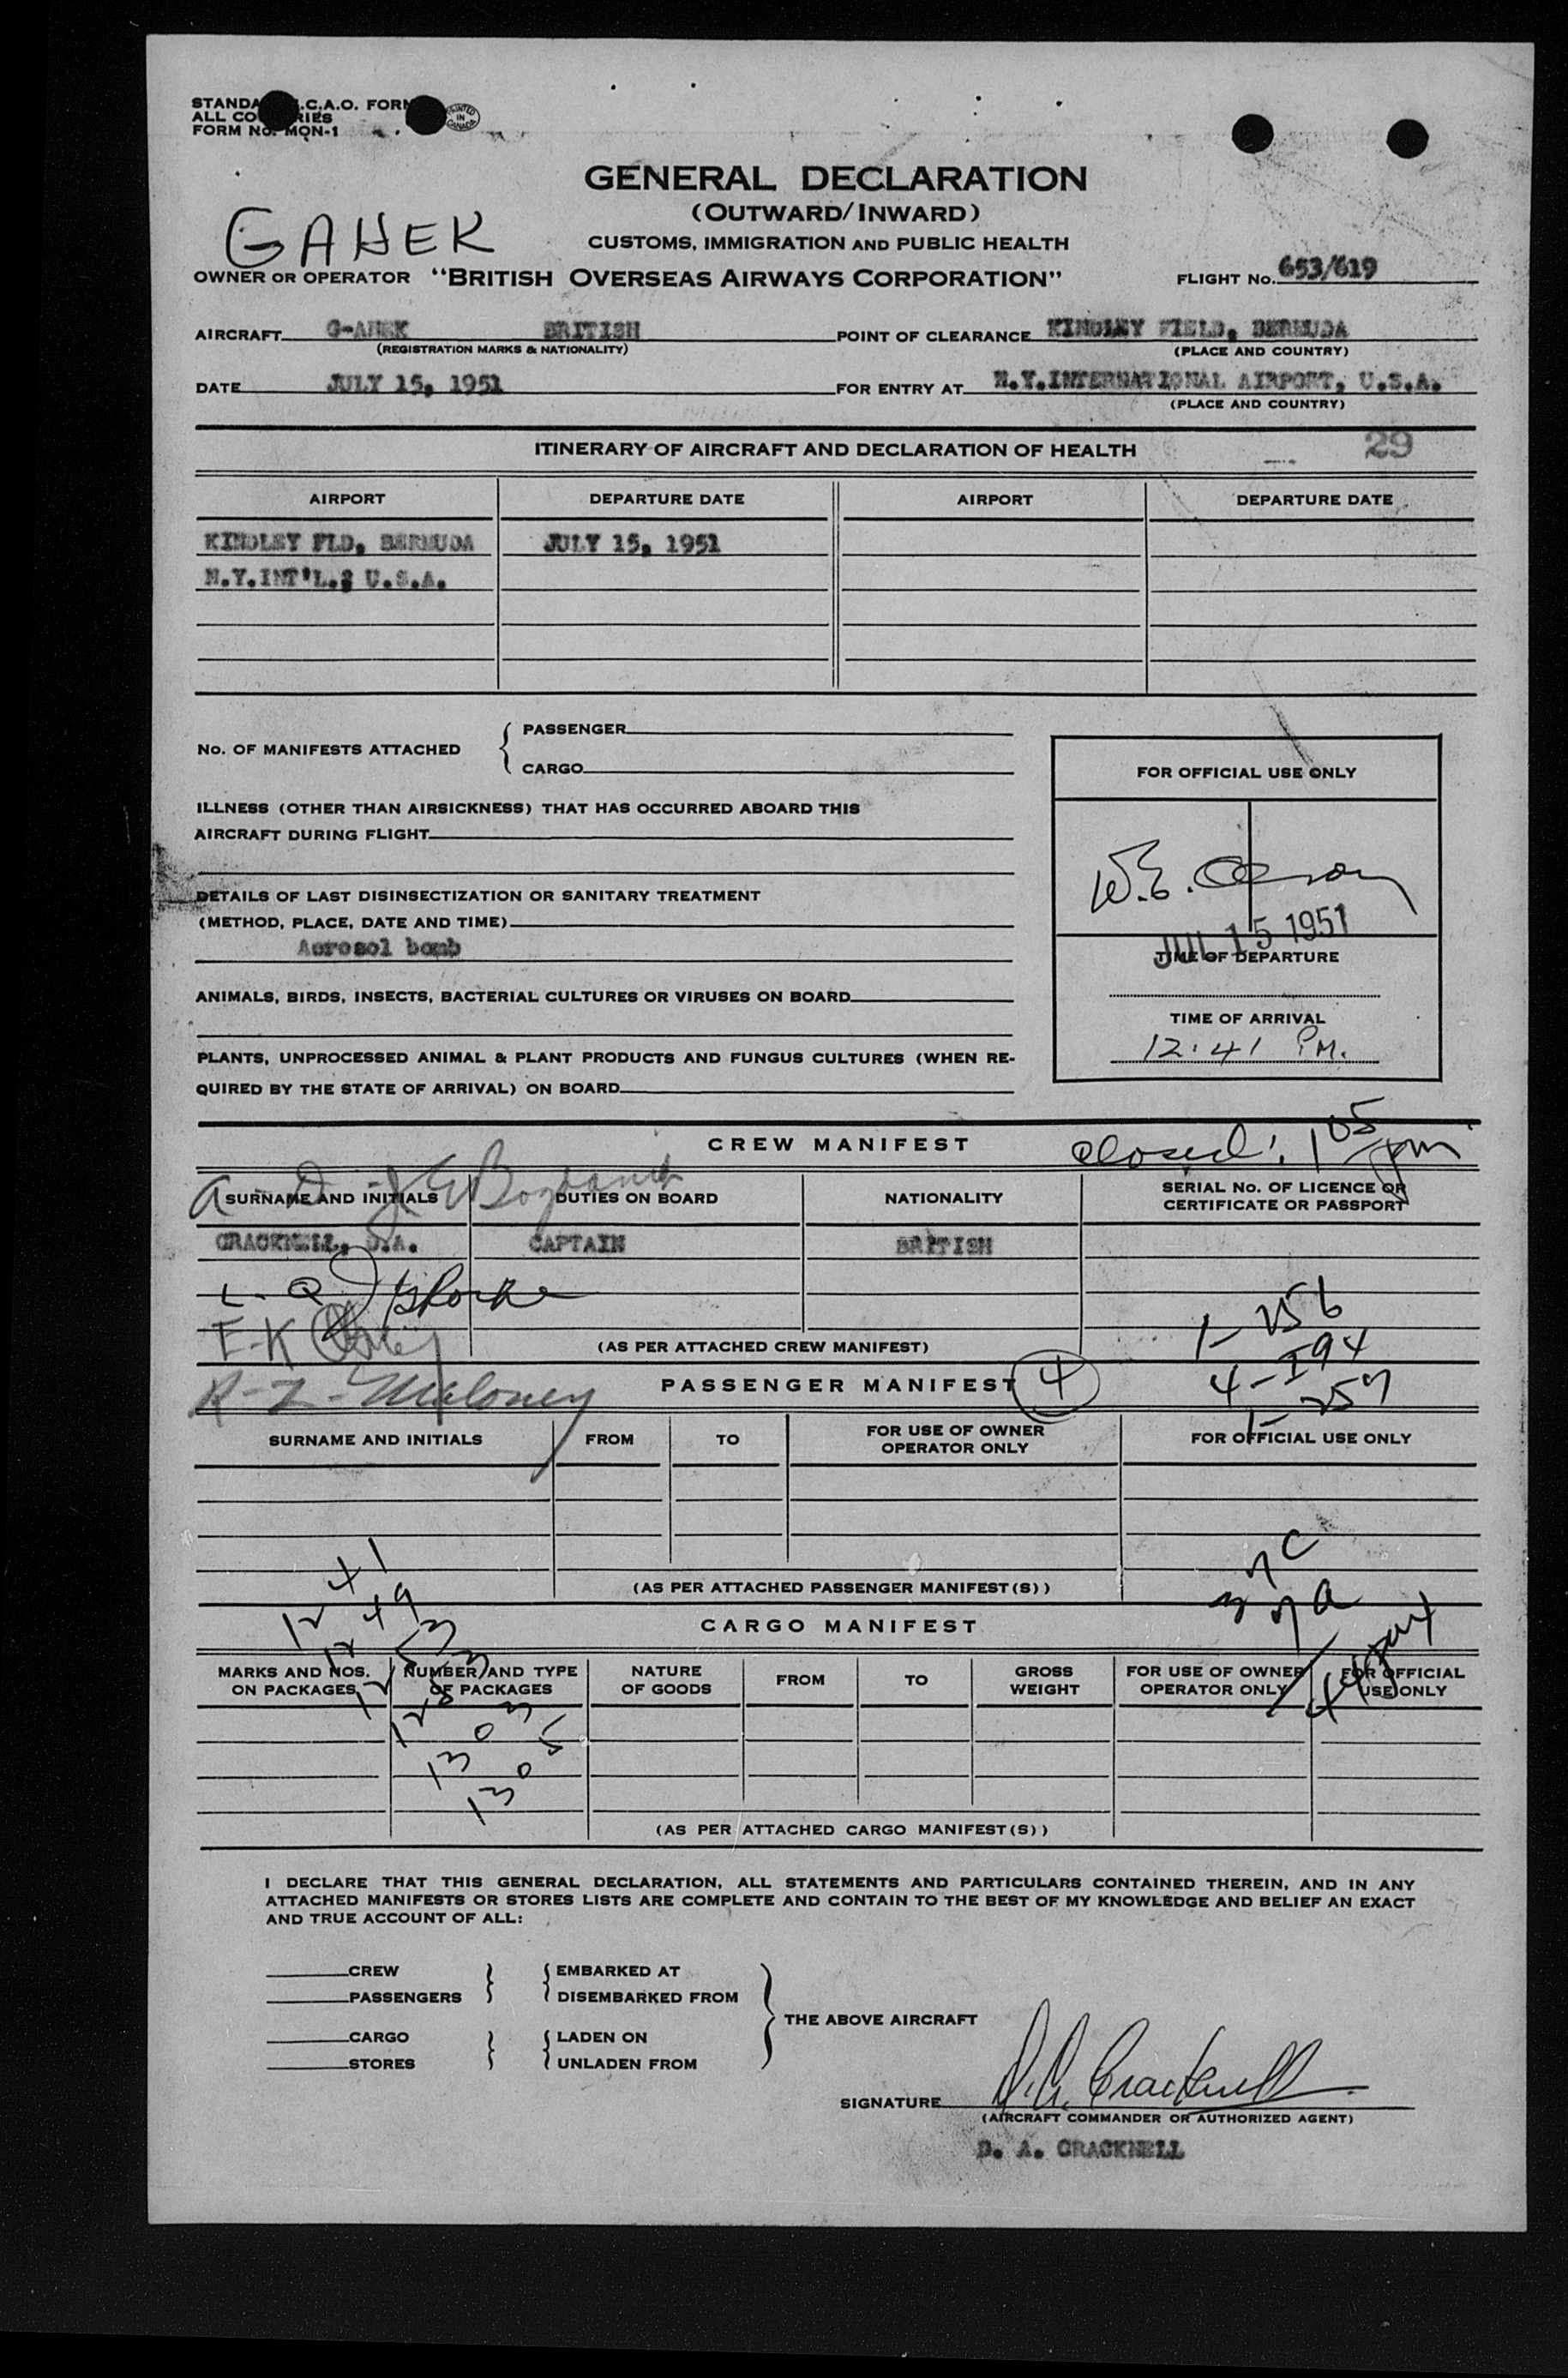 STANDA .C.A.O. FORM
ALL CO RIES
FORM No. MON-1
PRINTED IN CANADA
GENERAL DECLARATION
(OUTWARD/INWARD)
GAHEK
CUSTOMS, IMMIGRATION AND PUBLIC HEALTH
OWNER OR OPERATOR "BRITISH OVERSEAS AIRWAYS CORPORATION" FLIGHT No. 653/619
AIRCRAFT G-AHEK BRITISH POINT OF CLEARANCE KINDLEY FIELD, BERMUDA
(REGISTRATION MARKS & NATIONALITY) (PLACE AND COUNTRY)
DATE JULY 15, 1951 FOR ENTRY AT N.Y.INTERNATIONAL AIRPORT, U.S.A.
(PLACE AND COUNTRY)
ITINERARY OF AIRCRAFT AND DECLARATION OF HEALTH 29
AIRPORT DEPARTURE DATE AIRPORT DEPARTURE DATE
KINDLEY FLD, BERMUDA JULY 15, 1951
N.Y.INT'L., U.S.A.
No. OF MANIFESTS ATTACHED { PASSENGER
CARGO
FOR OFFICIAL USE ONLY
ILLNESS (OTHER THAN AIRSICKNESS) THAT HAS OCCURRED ABOARD THIS
AIRCRAFT DURING FLIGHT
W.E.
DETAILS OF LAST DISINSECTIZATION OR SANITARY TREATMENT
(METHOD, PLACE, DATE AND TIME)
JUL 15 1951
Aerosol bomb
TIME OF DEPARTURE
ANIMALS, BIRDS, INSECTS, BACTERIAL CULTURES OR VIRUSES ON BOARD
TIME OF ARRIVAL
12:41 PM.
PLANTS, UNPROCESSED ANIMAL & PLANT PRODUCTS AND FUNGUS CULTURES (WHEN RE-
QUIRED BY THE STATE OF ARRIVAL) ON BOARD
CREW MANIFEST closed: 1 05 pm
SURNAME AND INITIALS DUTIES ON BOARD NATIONALITY SERIAL No. OF LICENCE OR
CERTIFICATE OR PASSPORT
CRACKNELL, D.A. CAPTAIN BRITISH
1- 256
(AS PER ATTACHED CREW MANIFEST)
4- I94
R-L-Maloney
PASSENGER MANIFEST 4
1- 257
SURNAME AND INITIALS FROM TO FOR USE OF OWNER
OPERATOR ONLY FOR OFFICIAL USE ONLY
(AS PER ATTACHED PASSENGER MANIFEST(S))
12 41
12 49
CARGO MANIFEST
MARKS AND NOS.
ON PACKAGES NUMBER AND TYPE
OF PACKAGES NATURE
OF GOODS FROM TO GROSS
WEIGHT FOR USE OF OWNER
OPERATOR ONLY FOR OFFICIAL
USE ONLY
12 53
13 03
13 05
(AS PER ATTACHED CARGO MANIFEST(S))
I DECLARE THAT THIS GENERAL DECLARATION, ALL STATEMENTS AND PARTICULARS CONTAINED THEREIN, AND IN ANY
ATTACHED MANIFESTS OR STORES LISTS ARE COMPLETE AND CONTAIN TO THE BEST OF MY KNOWLEDGE AND BELIEF AN EXACT
AND TRUE ACCOUNT OF ALL:
CREW EMBARKED AT
PASSENGERS DISEMBARKED FROM
THE ABOVE AIRCRAFT
CARGO LADEN ON
STORES UNLADEN FROM
SIGNATURE D.A. Cracknell
(AIRCRAFT COMMANDER OR AUTHORIZED AGENT)
D. A. CRACKNELL